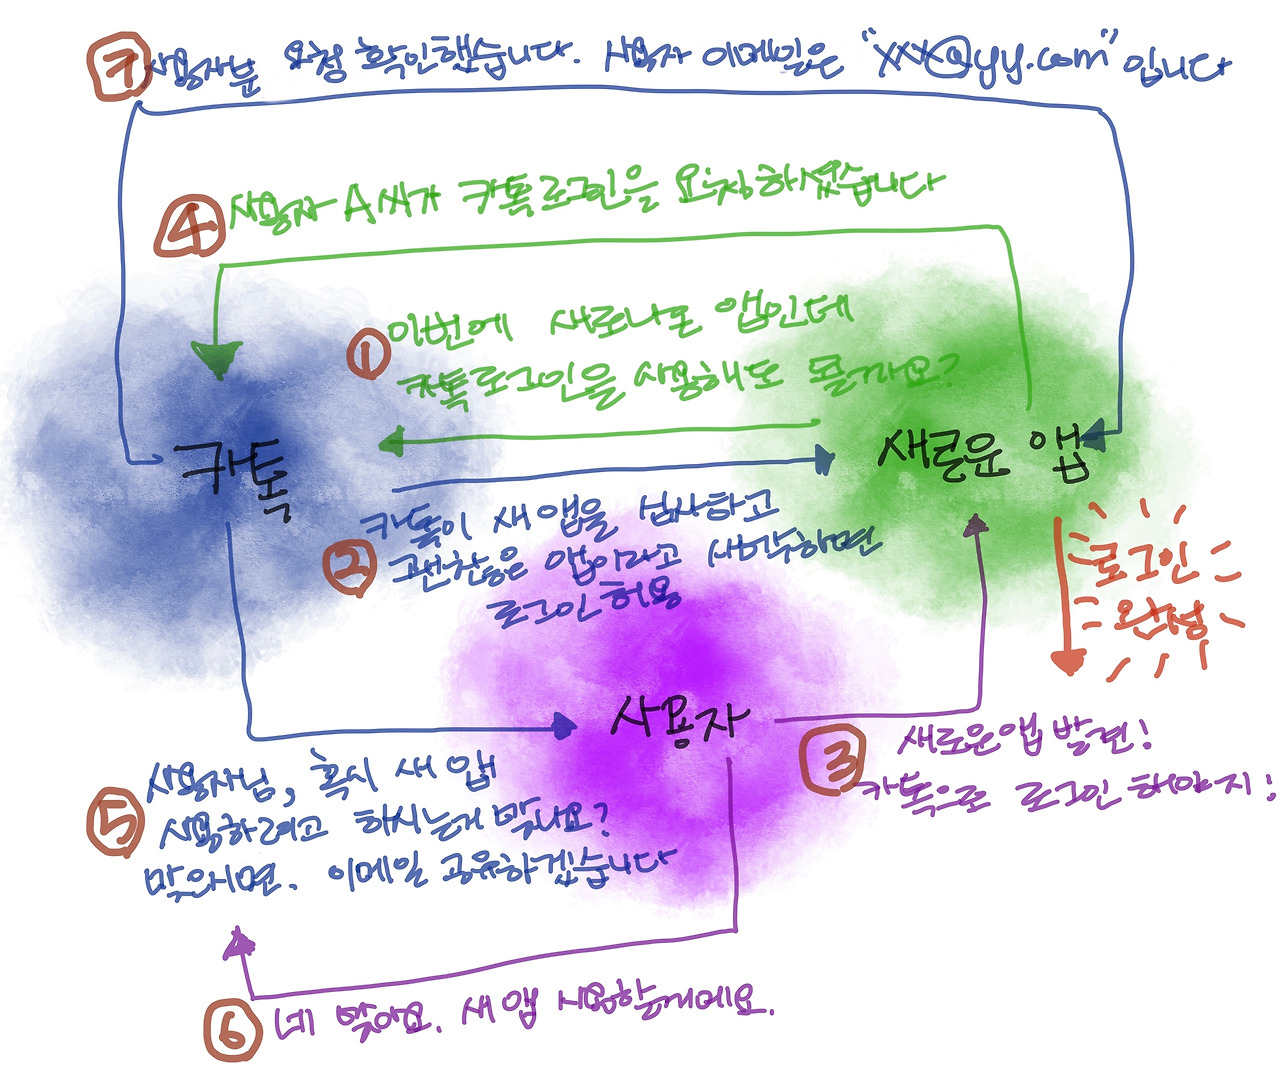 7 사용자분 요청 확인했습니다. 사용자 이메일은 "xxx@yy.com" 입니다
4 사용자 A씨가 카톡로그인을 요청하셨습니다
1 이번에 새로나온 앱인데
카톡로그인을 사용해도 될까요?
카톡
새로운 앱
2 카톡이 새 앱을 심사하고
괜찮은 앱이라고 생각하면
로그인 허용
로그인
완성
사용자
3 새로운 앱 발견!
카톡으로 로그인 해야지!
5 사용자님, 혹시 새 앱
사용하려고 하시는게 맞나요?
맞으시면. 이메일 공유하겠습니다
6 네 맞아요. 새 앱 사용할거에요.